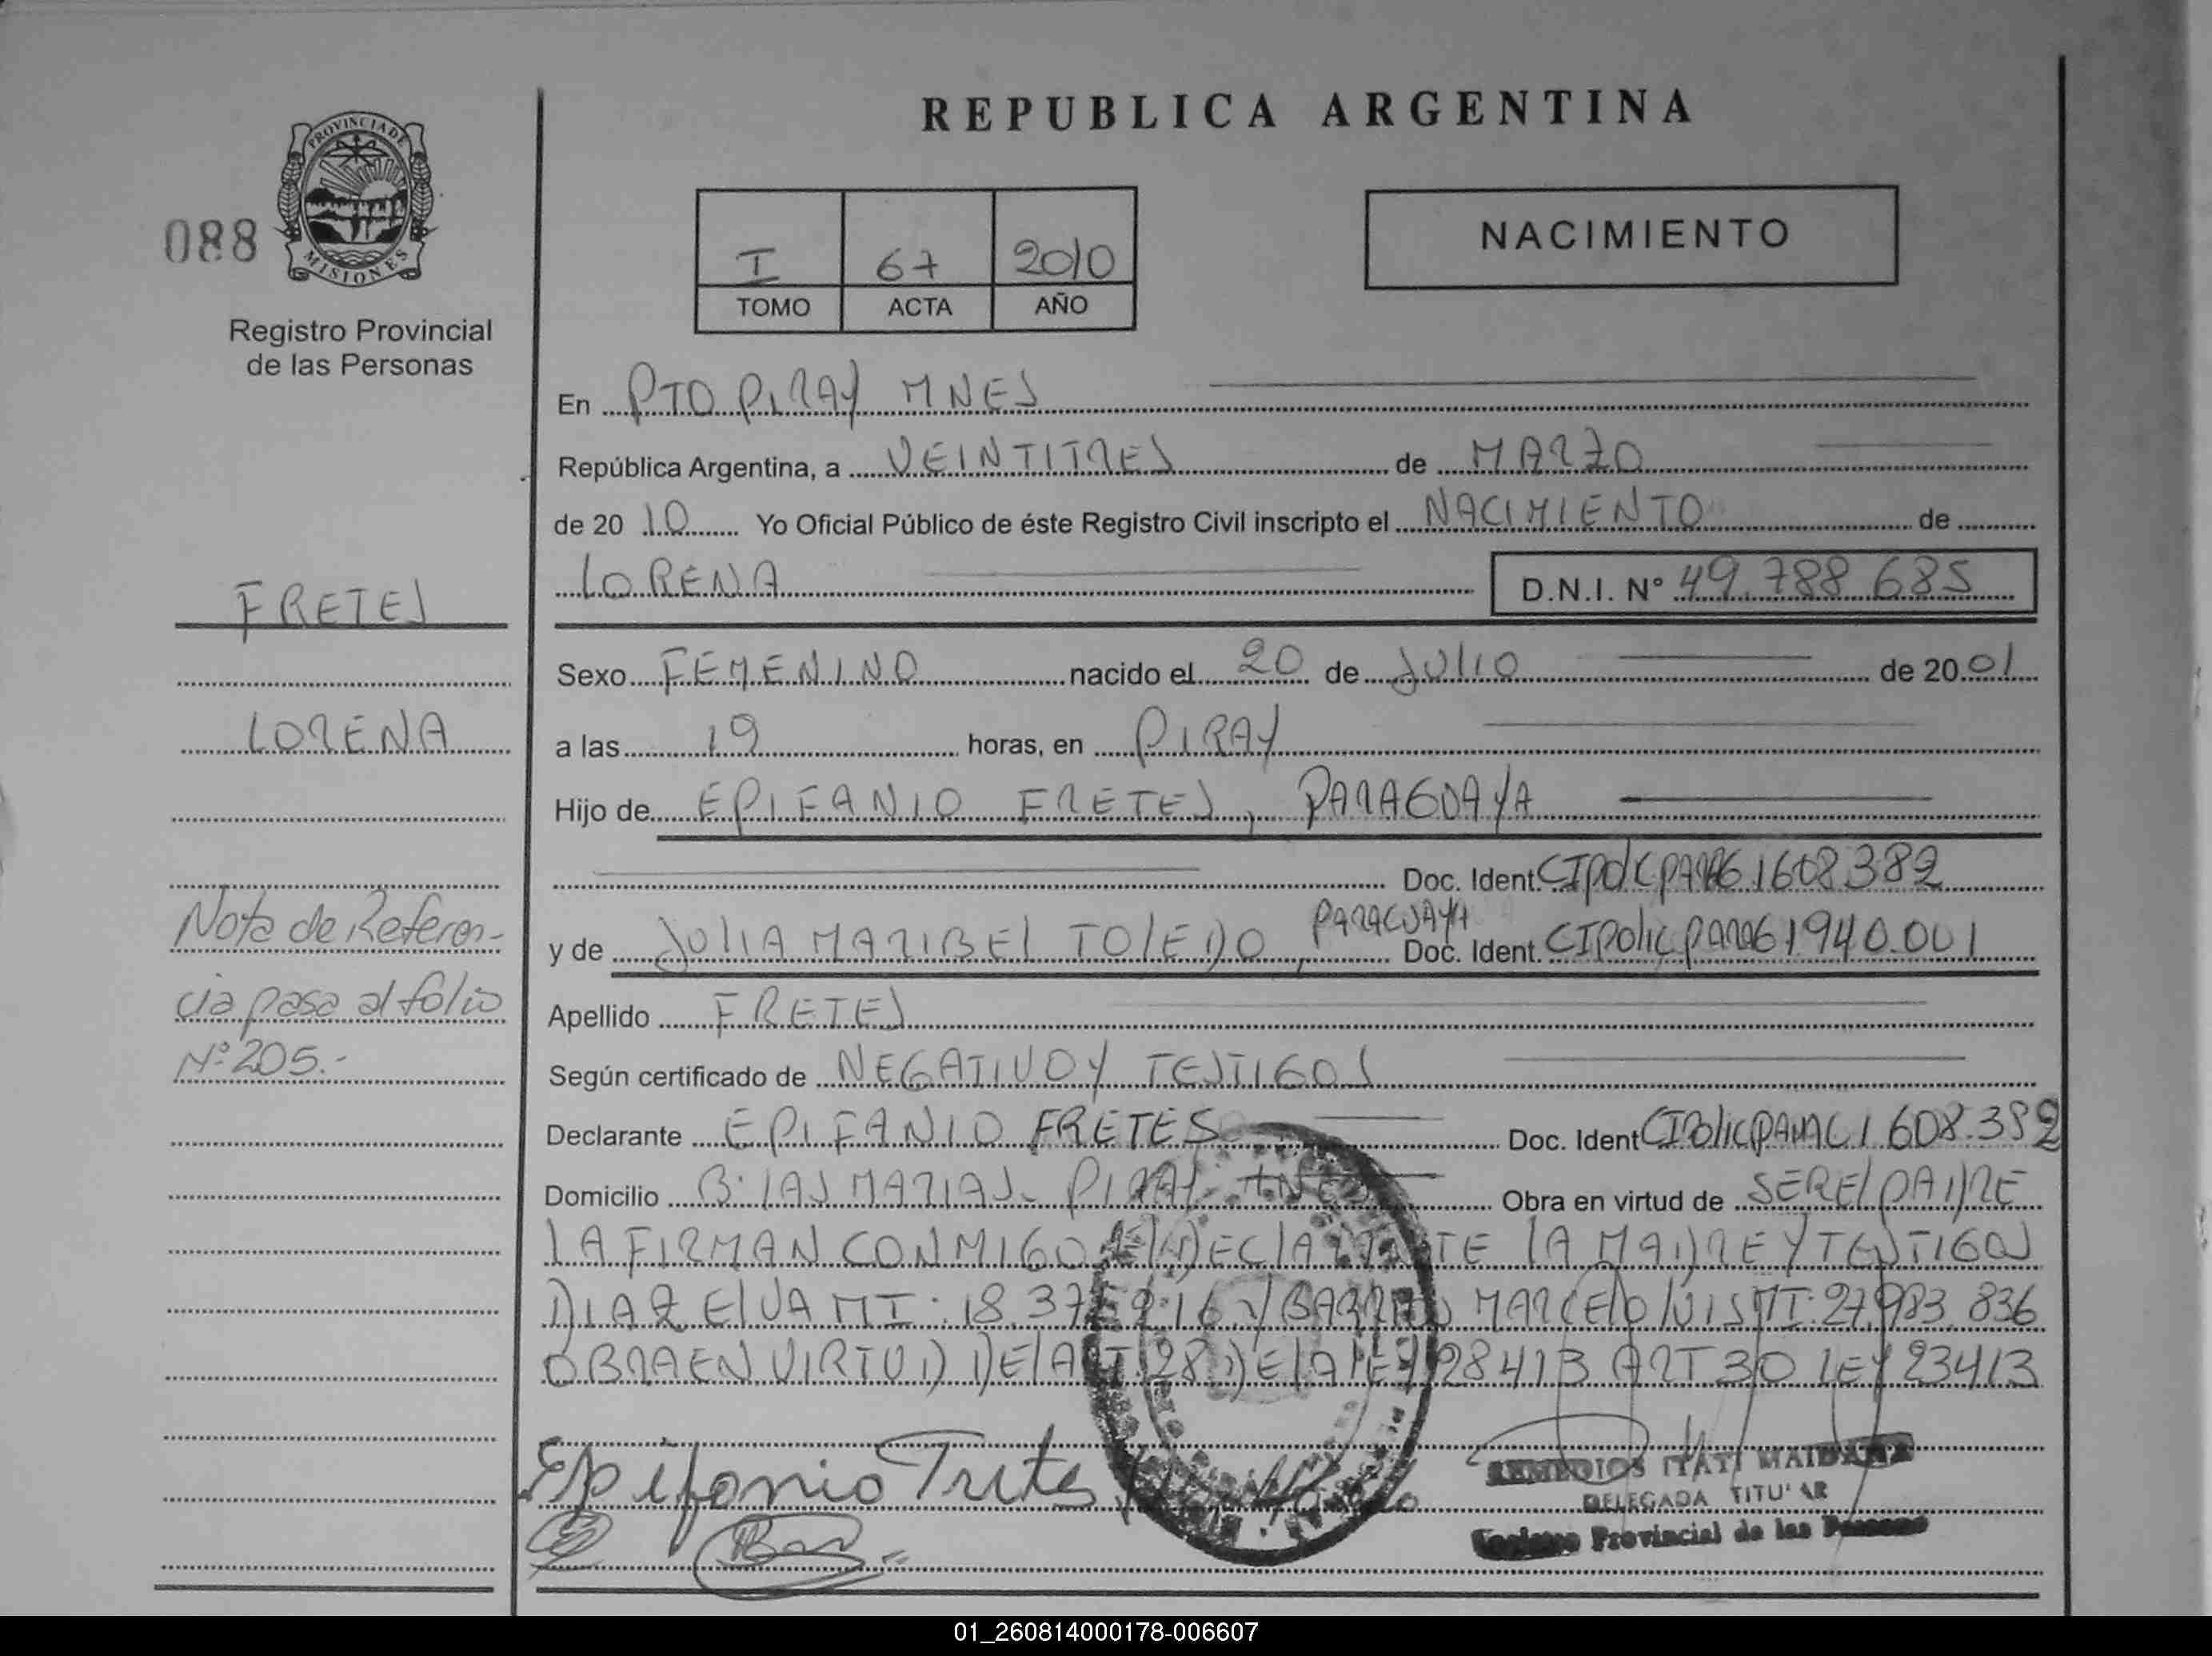 REPUBLICA ARGENTINA
PROVINCIA DE
MISIONES
088
Registro Provincial
de las Personas
I 67 2010
TOMO ACTA AÑO
NACIMIENTO
En PTO PIRAY MNES
República Argentina, a VEINTITRES de MARZO
de 20 10 Yo Oficial Público de éste Registro Civil inscripto el NACIMIENTO de
LORENA D.N.I. Nº 49.788.685
FRETES
Sexo FEMENINO nacido el 20 de JULIO de 20 01
LORENA
a las 19 horas, en PIRAY
Hijo de EPIFANIO FRETES, PARAGUAYA
Doc. Ident. CIPolicPARAG 1608382
y de JULIA MARIBEL TOLEDO, PARAGUAYA Doc. Ident. CIPolicPARAG 1940.001
Nota de Referen-
cia pasa al folio
Nº 205.-
Apellido FRETES
Según certificado de NEGATIVO Y TESTIGOS
Declarante EPIFANIO FRETES Doc. Ident CIPolicPARAG 1608.382
Domicilio Bº LAS MARIAS PIRAY MNES Obra en virtud de SER EL PADRE
LA FIRMAN CONMIGO EL DECLARANTE LA MADRE Y TESTIGOS
DIAZ ELVA MI: 18.37 MARCELO LUIS MI: 27.983.836
OBRA EN VIRTUD DEL ART 28 DE LA LEY 28413 ART 30 LEY 23413
Epifanio Fretes
REMEDIOS ITATI MAIDANA
DELEGADA TITULAR
Provincial de las Personas
01_260814000178-006607